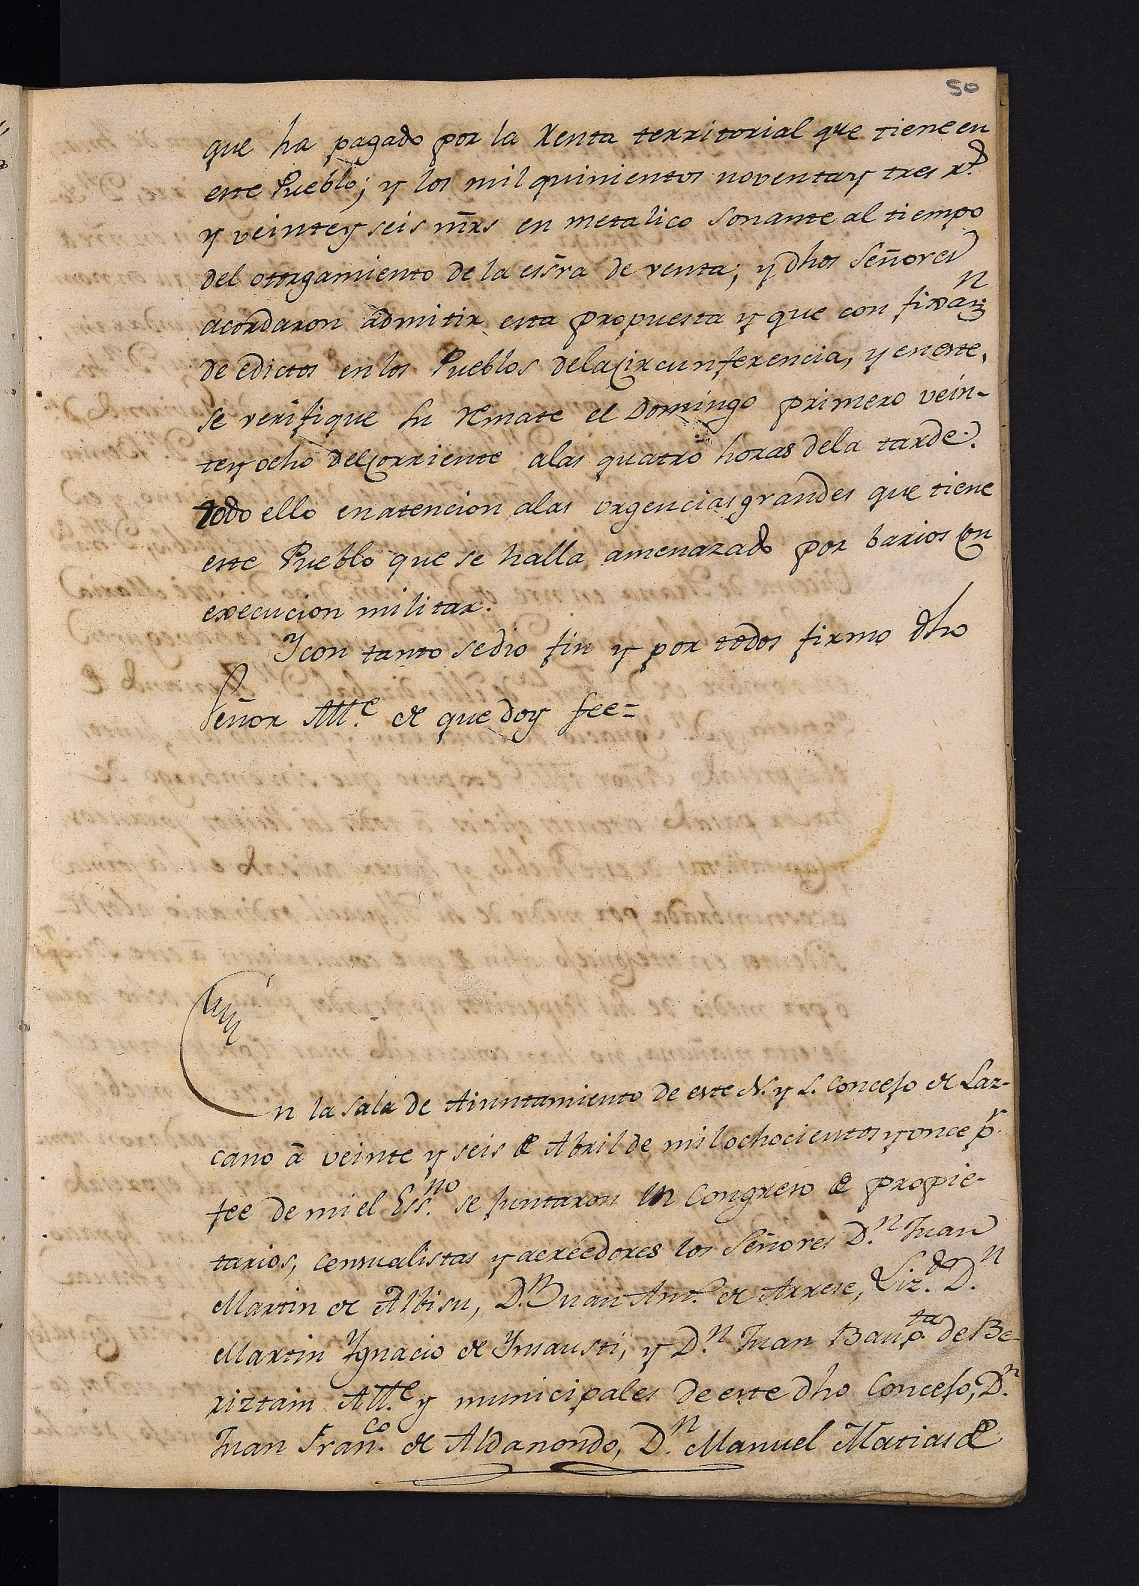 50
que ha pagado por la Renta territorial que tiene en
este Pueblo; y los mil quinientos noventa y tres r.s
y veinte y seis mrs en metalico sonante al tiempo
del otorgamiento de la essra de venta; y dhos Señores
acordaron admitir esta propuesta y que con fixazn
de edictos en los Pueblos dela Circunferencia, y en este,
se verifique su Remate el Domingo primero vein-
te y ocho del Corriente alas quatro horas dela tarde.
Todo ello en atencion alas urgencias grandes que tiene
este Pueblo que se halla amenazado por barios con
execucion militar.
Y con tanto se dio fin y por todos firmo dho
Señor Alle. de que doy fee=
En la Sala de Aiuntamiento de este N. y L. Concejo de Laz-
cano â veinte y seis de Abril de mil ochocientos y once p.r
fee de mi el Ess.no se juntaron en Congreso de propie-
tarios, censualistas y acreedores los Señores D.n Juan
Martin de Albisu, D.n Juan Ant.o de Arrese, Liz.do D.n
Martin Ygnacio de Ymausti, y D.n Juan Baup.ta de Be-
riztain Alle. y municipales de este dho Concejo, D.n
Juan Fran.co de Aldanondo, D.n Manuel Matias de